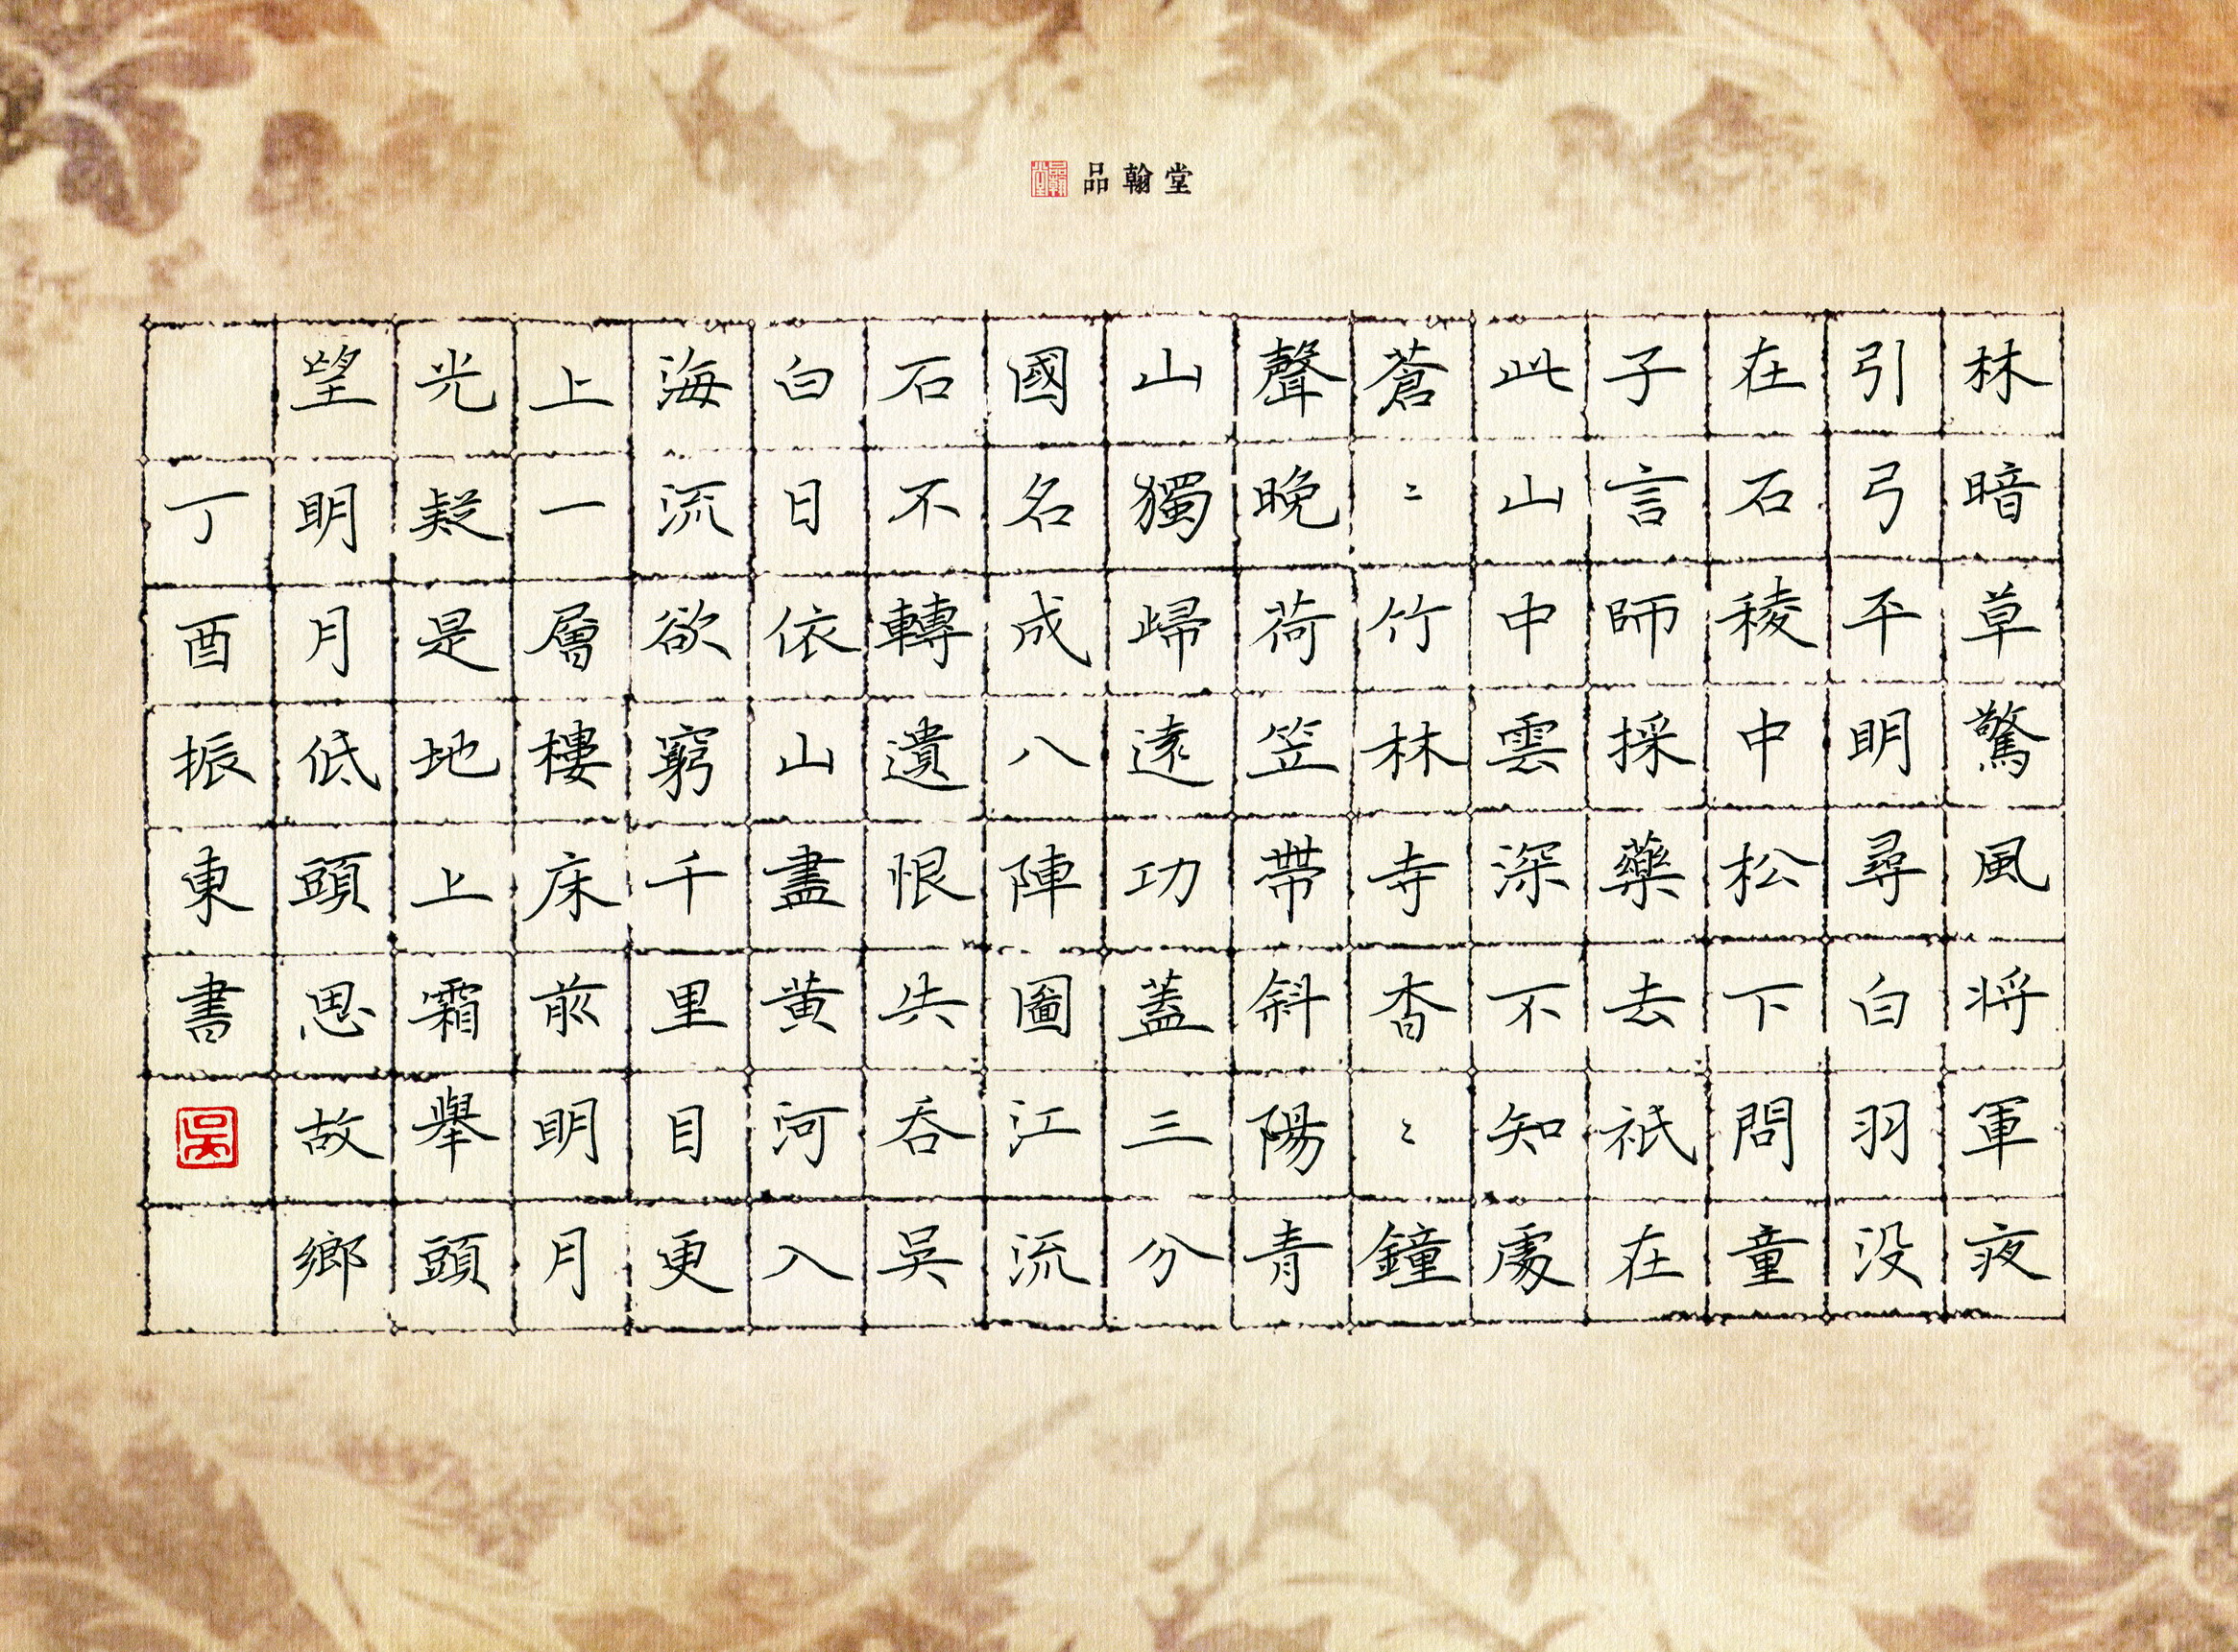 品翰堂
品翰堂
林暗草驚風将軍夜
引弓平明尋白羽没
在石稜中松下問童
子言師採藥去祇在
此山中雲深不知處
蒼〻竹林寺杳〻鐘
聲晚荷笠帶斜陽青
山獨歸遠功蓋三分
國名成八陣圖江流
石不轉遺恨失吞吳
白日依山盡黄河入
海流欲窮千里目更
上一層樓床前明月
光疑是地上霜舉頭
望明月低頭思故鄉
丁酉振東書
吳